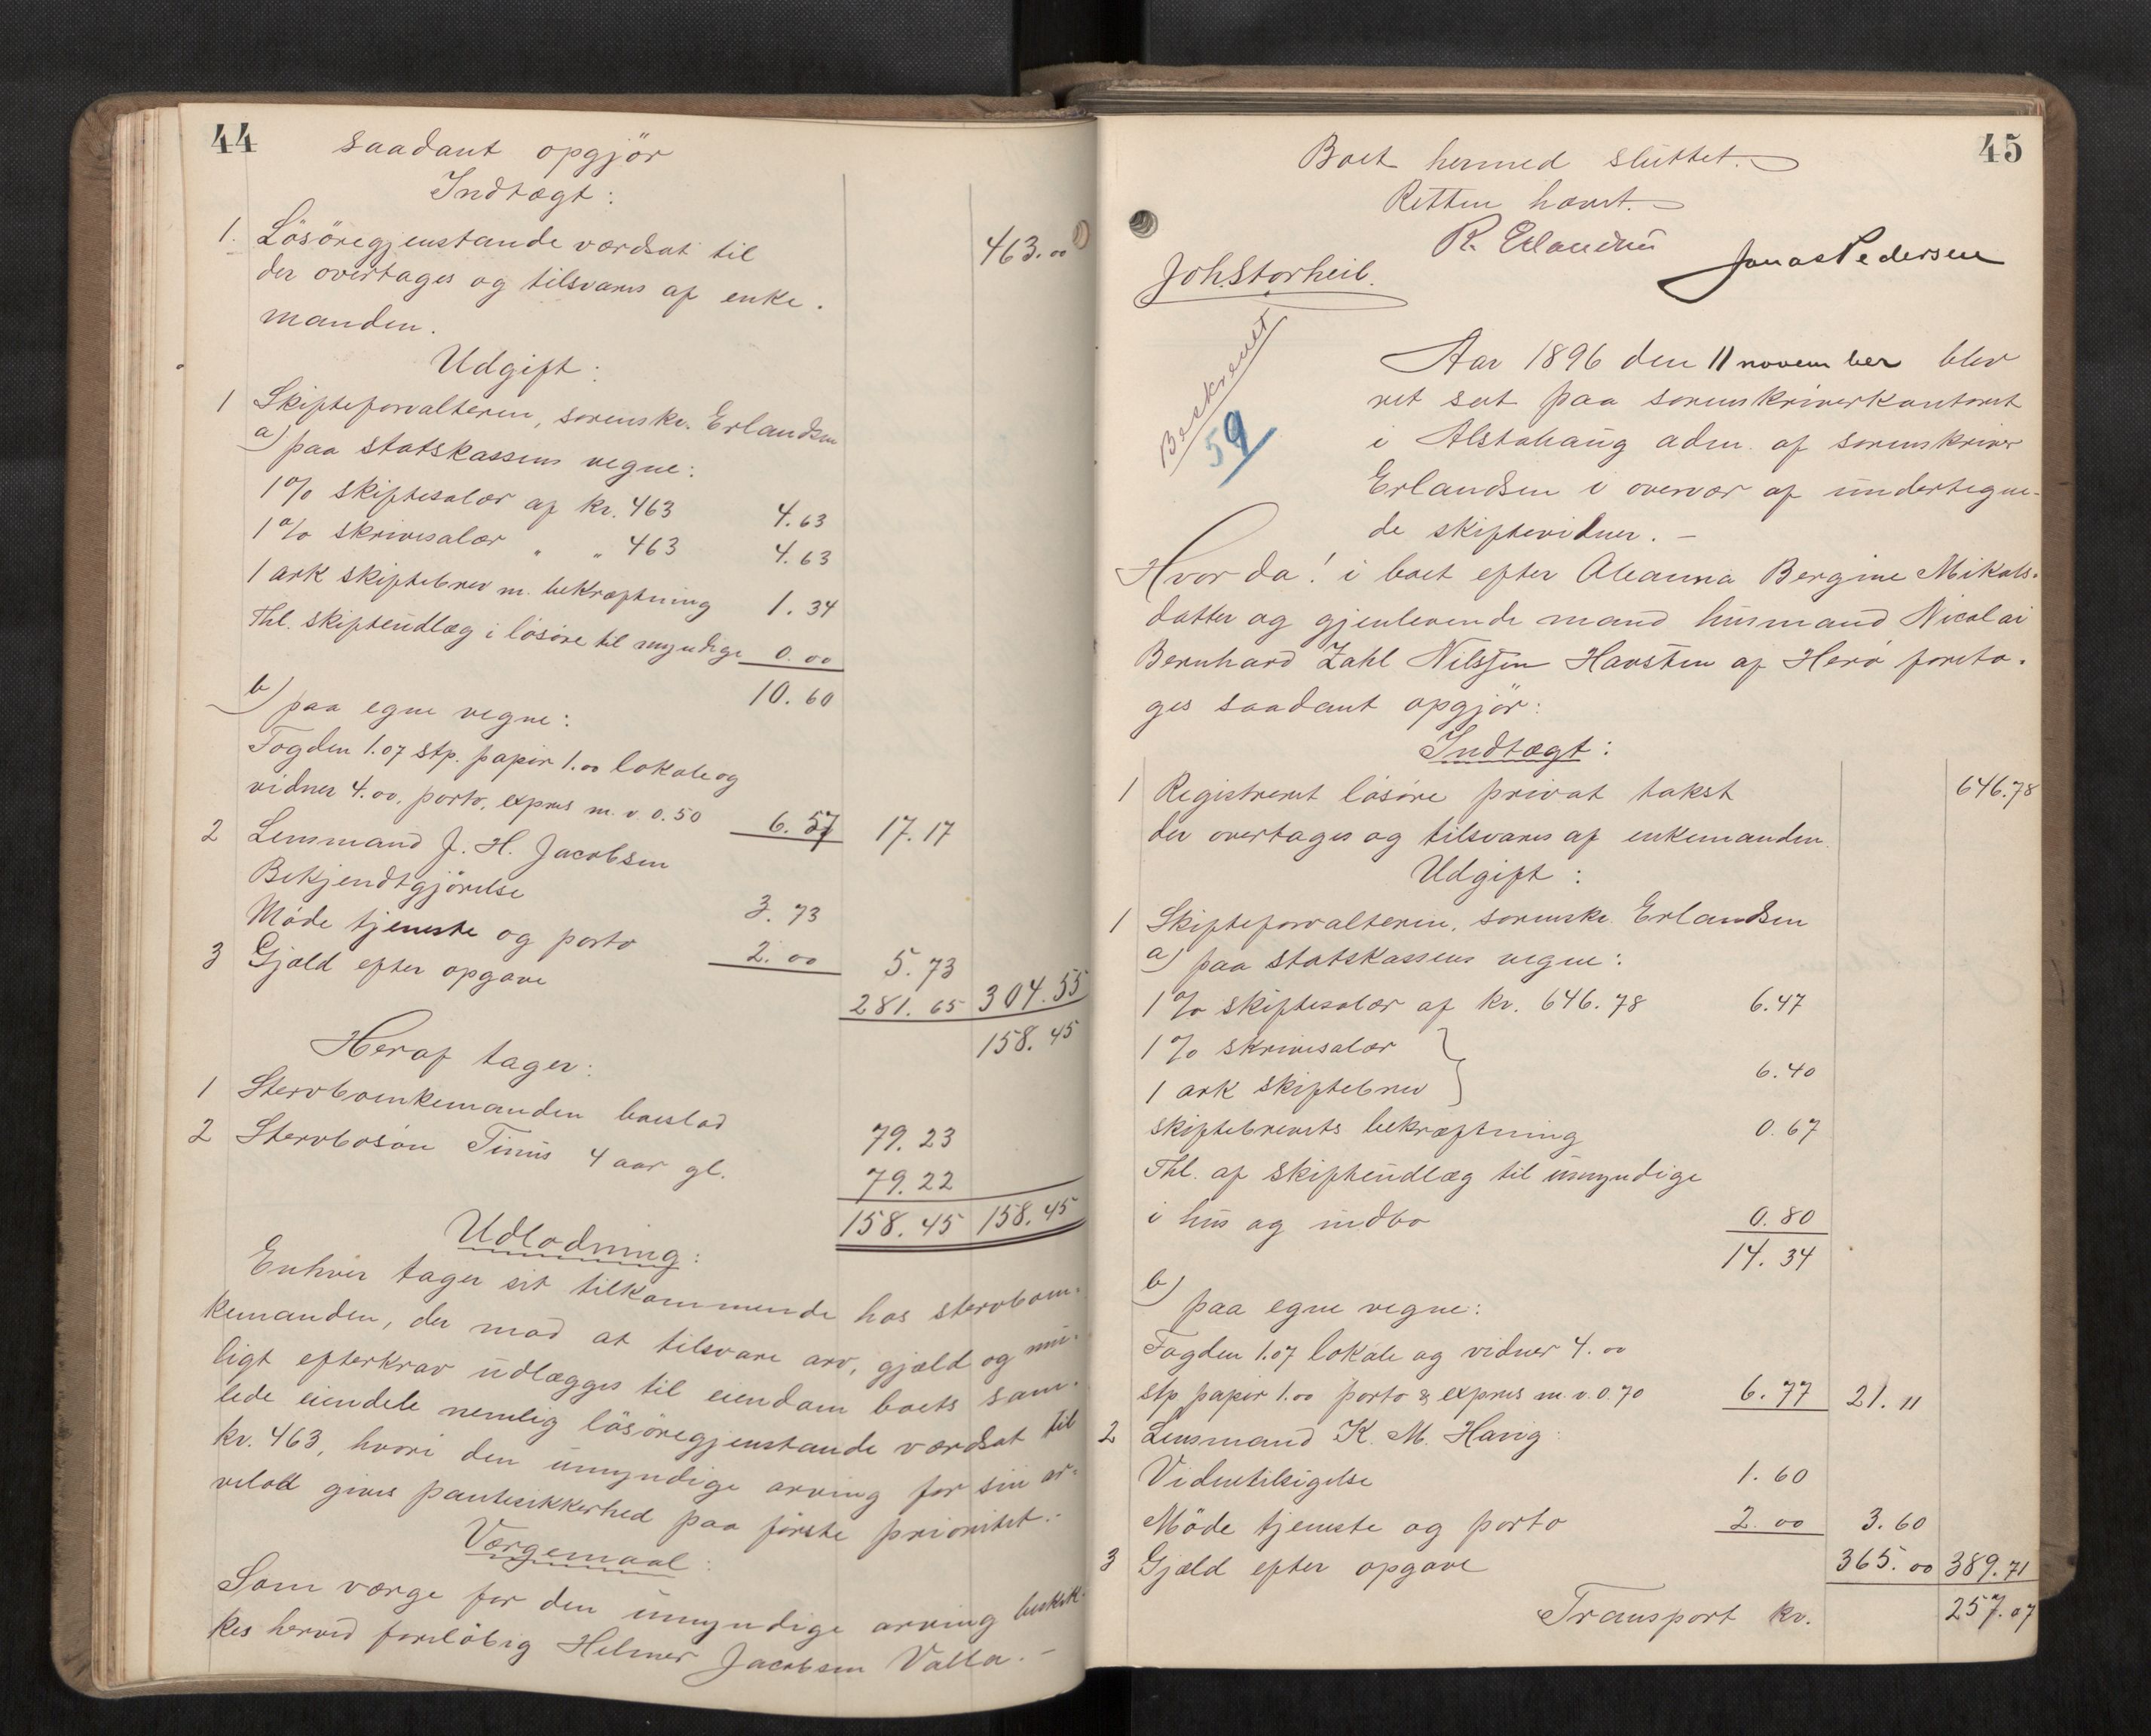 44
saadant opgjör
Indtægt:
1. Lösöregjenstande værdsat til 463.00
der overtages og tilsvares af enke-
manden.
Udgift:
1 Skifteforvalteren, sorenskr. Erlandsen
a) paa statskassens vegne:
1% skiftesalær af kr. 463 4.63
1% skrivesalær " " 463 4.63
1 ark skiftebrev m. bekræftning 1.34
Thl. skifteudlæg i lösöre til myndige 0.00
10.60
b) paa egne vegne:
Fogden 1.07 stp. papir 1.00 lokale og
vidner 4.00, porto, expres m.v. 0.50 6.57 17.17
2 Lensmand J. H. Jacobsen
Bekjendtgjörelse 3.73
Möde tjeneste og porto 2.00 5.73
3 Gjæld efter opgave 281.65 304.55
158.45
Heraf tager:
1 Stervboenkemanden boeslod 79.23
2 Stervbosön Tinus 4 aar gl. 79.22
158.45 158.45
Udlodning:
Enhver tager sit tilkommende hos stervboen-
kemanden, der mod at tilsvare arv, gjæld og mu-
ligt efterkrav udlægges til eiendom boets sam-
lede eiendele nemlig lösöregjenstande værdsat til
kr. 463, hvori den umyndige arving for sin ar-
velod gives pantesikkerhed paa förste prioritet.-
Værgemaal:
Som værge for den umyndige arving beskik-
kes herved foreløbig Helmer Jacobsen Valla.-
45
Boet hermed sluttet.
Retten hævet.
R. Erlandsen
Joh. Storheil. Jonas Pedersen
Beskrevet
59
Aar 1896 den 11 november blev
ret sat paa sorenskriverkontoret
i Alstahaug adm. af sorenskriver
Erlandsen i overvær af undertegne-
de skiftevidner. -
Hvorda! i boet efter Aleanna Bergine Mikals-
datter og gjenlevende mand husmand Nicolai
Bernhard Zahl Nilssen Havsten af Herö foreto-
ges saadant opgjör:
Indtægt:
1 Registreret lösöre privat takst 646.78
der overtages og tilsvares af enkemanden.
Udgift:
1 Skifteforvalteren, sorenskr. Erlandsen
a) paa statskassens vegne:
1% skiftesalær af kr. 646.78 6.47
1% skrivesalær }
1 ark skiftebrev } 6.40
skiftebrevets bekræftning 0.67
Thl. af skifteudlæg til umyndige
i hus og indbo 0.80
14.34
b) paa egne vegne:
Fogden 1.07 lokale og vidner 4.00
stp papir 1.00 porto & expres m.v. 0.70 6.77 21.11
2 Lensmand K. M. Havig:
Vidnetilsigelse 1.60
Möde tjeneste og porto 2.00 3.60
3 Gjæld efter opgave 365.00 389.71
Transport kr. 257.07